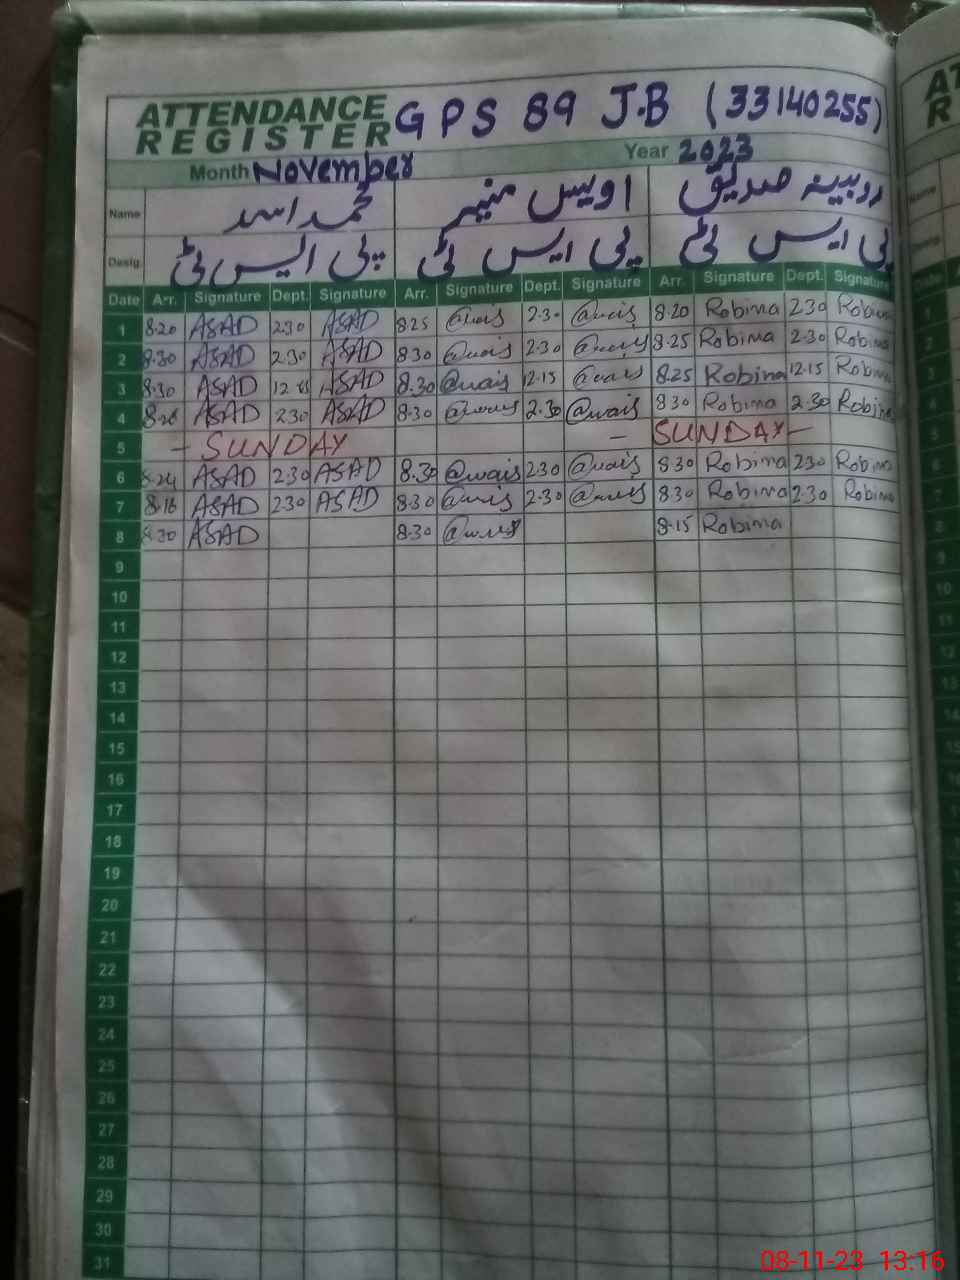 ATTENDANCE REGISTER GPS 89 J.B (33140255)
Month November Year 2023
Name محمد اسد اویس منیر روبینہ صدیق
Desig. پی ایس ٹی پی ایس ٹی پی ایس ٹی
Date Arr. Signature Dept. Signature Arr. Signature Dept. Signature Arr. Signature Dept. Signature
1 8.20 ASAD 2.30 ASAD 8.25 @wais 2.30 @wais 8.20 Robina 2.30 Robina
2 8.30 ASAD 2.30 ASAD 8.30 @wais 2.30 @wais 8.25 Robina 2.30 Robina
3 8.30 ASAD ASAD 8.30 @wais 12.15 @wais 8.25 Robina 12.15 Robina
4 ASAD 2.30 ASAD 8.30 @wais 2.30 @wais 8.30 Robina 2.30 Robina
5 - SUNDAY - SUNDAY -
6 8.24 ASAD 2.30 ASAD 8.30 @wais 2.30 @wais 8.30 Robina 2.30 Robina
7 8.16 ASAD 2.30 ASAD 8.30 @wais 2.30 @wais 8.30 Robina 2.30 Robina
8 8.20 ASAD 8.30 @wais 8.15 Robina
9
10
11
12
13
14
15
16
17
18
19
20
21
22
23
24
25
26
27
28
29
30
31
08-11-23 13:16